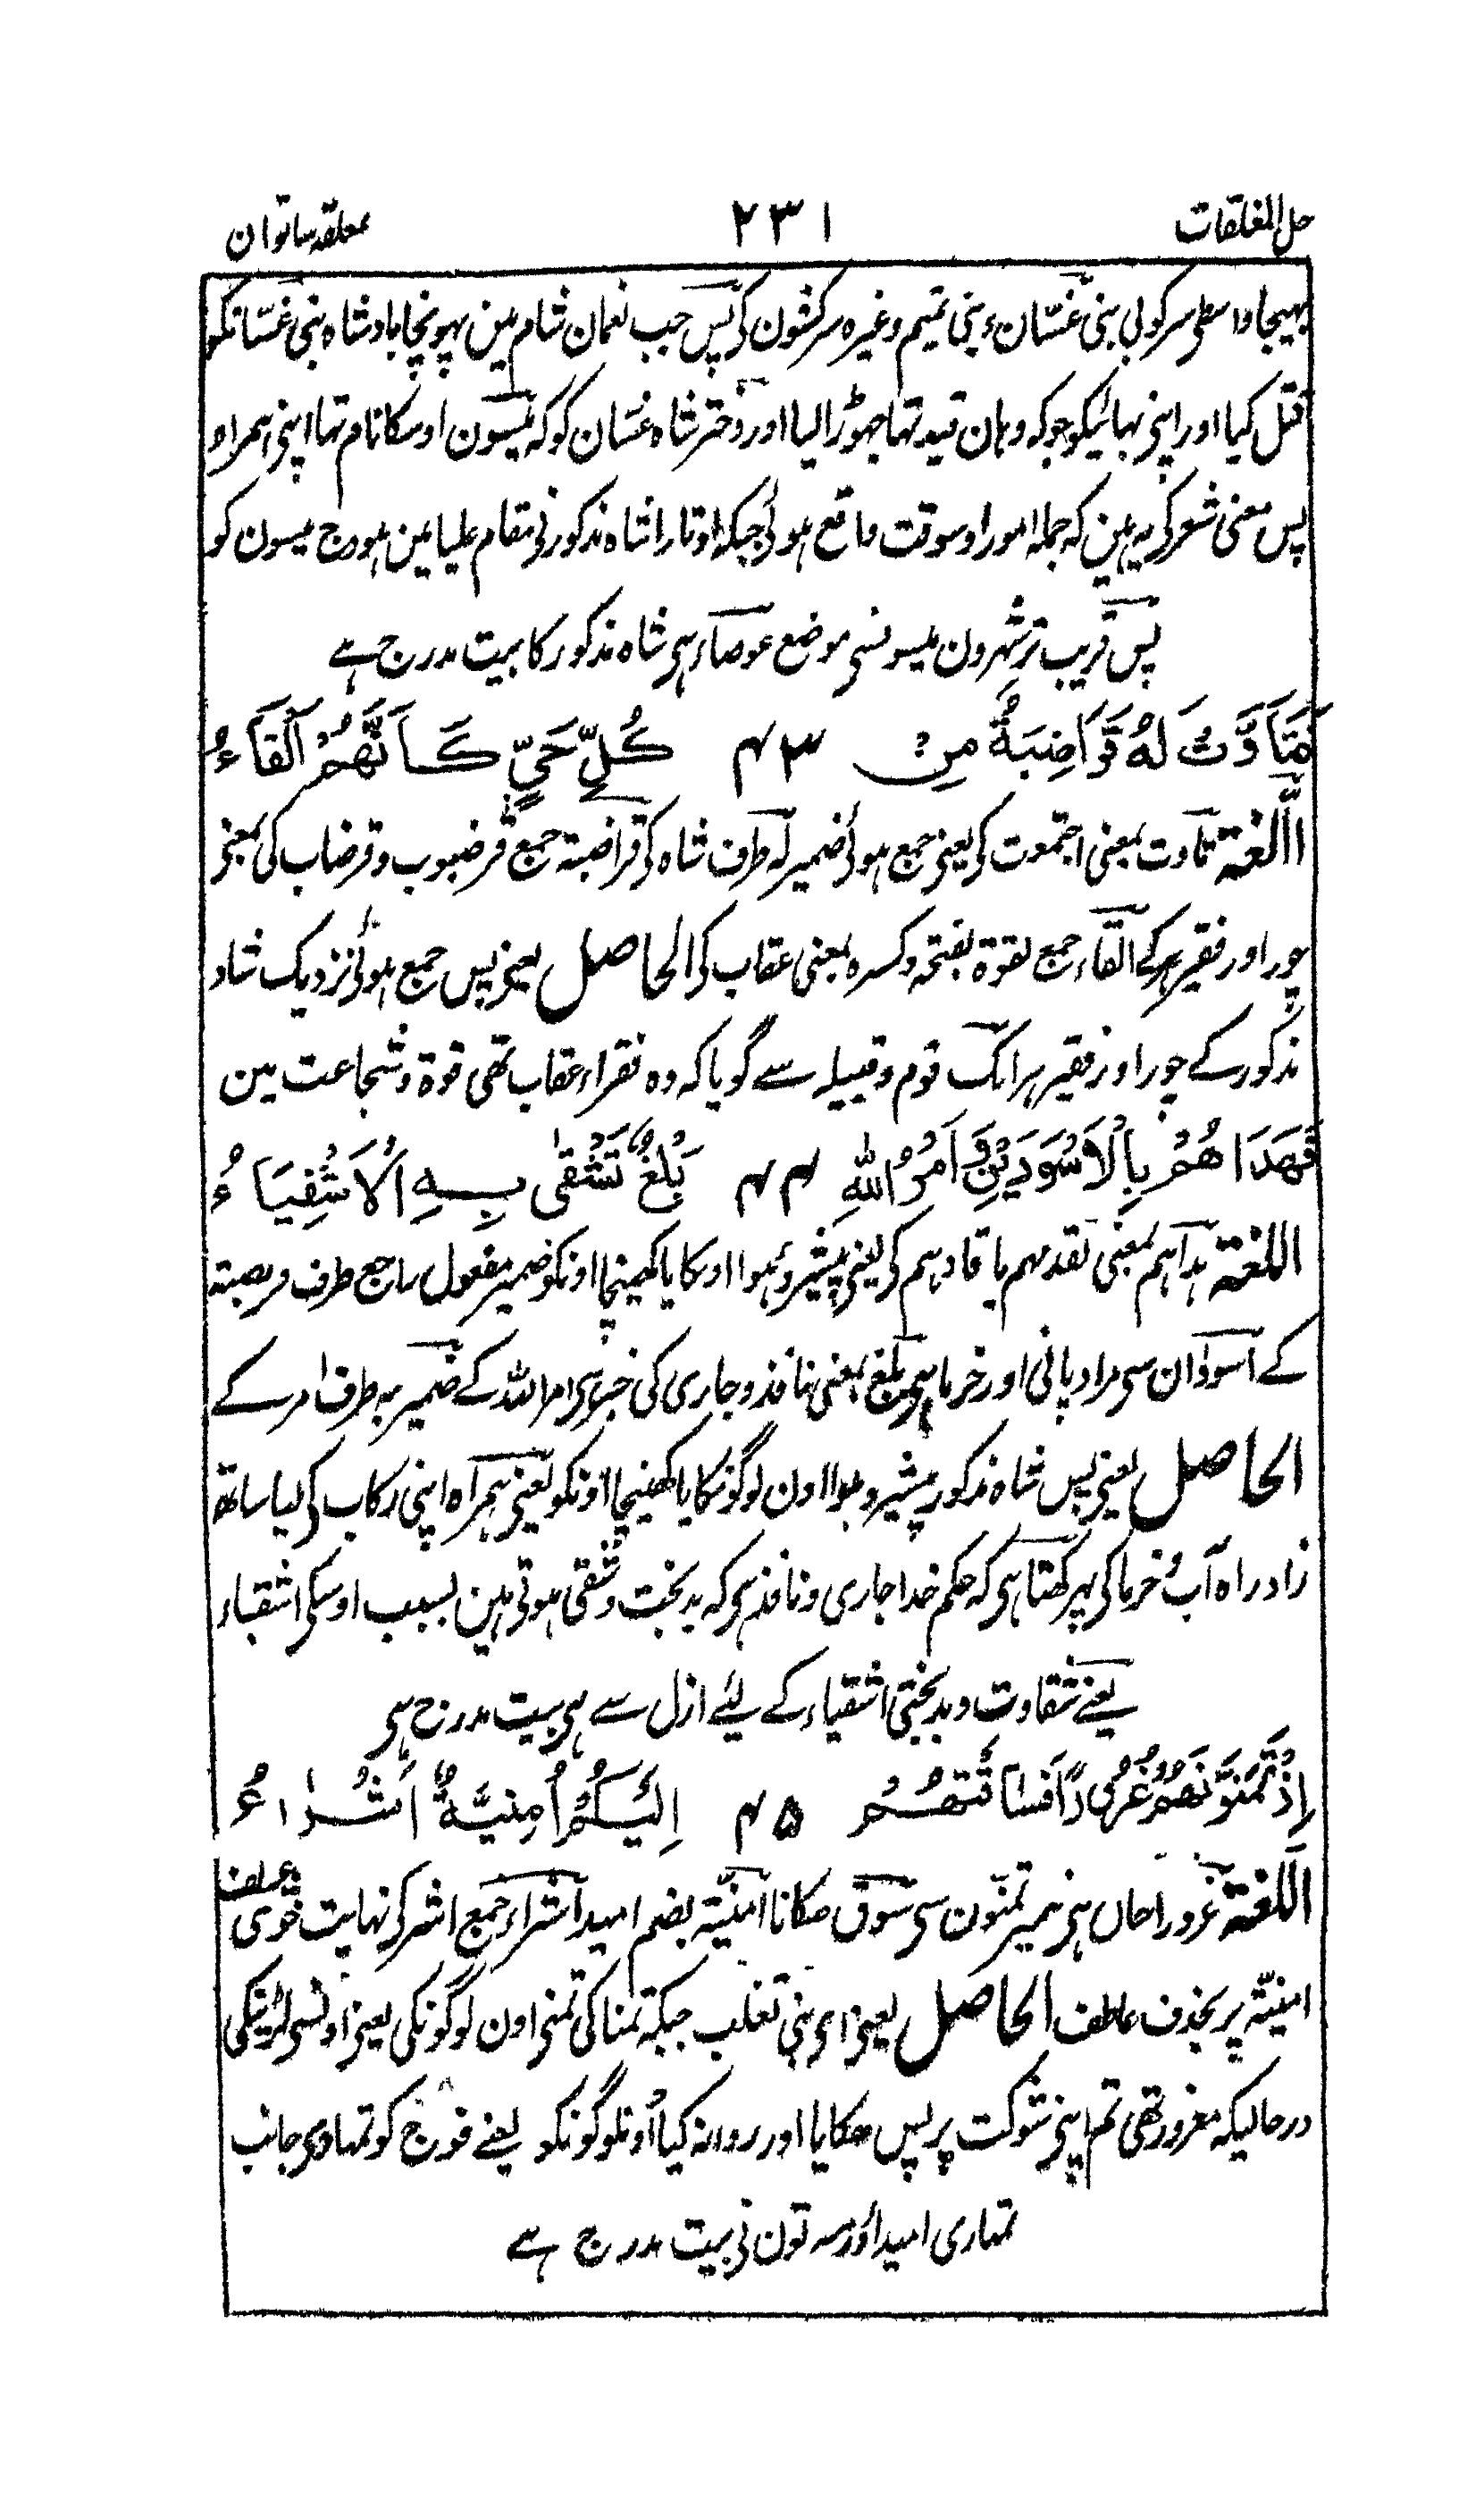 حل المغلقات ۲۳۱ معلقہ ساتوان
بہیجا واسطی سرکوبی بنی غسّان و بنی تمیم وغیرہ سرکشون کی پس جب نعمان شام مین پہونچا بادشاہ بنی غسّانکو
قتل کیا اور اپنی بہائیکو جو کہ وہان قید تہا چہوڑا لیا اور دختر شاہ غسّان کو کہ میسون اوسکا نام تہا اپنی ہمراہ
پس معنی شعر کی یہ ہین کہ جملہ امور اوسوقت واقع ہوئی جبکہ اوتارا شاہ مذکور نی مقام علیا مین ہودج میسون کو
پس قریب تر شہرون میسونسی موضع عوصاء ہی شاہ مذکور کا بیت مدرج ہے
فَتَاَوَّتْ لَهُ قَرَاضِبَةٌ مِنْ ۴۳ كُلِّ حَيٍّ كَاَنَّهُمْ اَلْقَاءُ
اللّغة تاوت بمعنی اجتمعت کی یعنی جمع ہوئی ضمیر لہ طرف شاہ کی قراضبۃ جمع قرضوب و قرضاب کی بمعنی
چور اور فقیر کے القاء جمع لقوۃ بفتحہ و کسرہ بمعنی عقاب کی الحاصل یعنی پس جمع ہوئی نزدیک شاہ
مذکور کے چور اور فقیر ہر ایک قوم و قبیلہ سے گویا کہ وہ فقراء عقاب تھی قوۃ و شجاعت مین
فَهَدَاهُمْ بِالْاَسْوَدَيْنِ وَاَمْرُ اللّٰهِ ۴۴ بَلْغٌ تَشْقٰى بِهِ الْاَشْقِيَاءُ
اللغة ہداہم بمعنی تقدمہم یا قادہم کی یعنی پیشرو ہوا اونکا یا کھینچا اونکو ضمیر مفعول راجع طرف قربضبۃ
کے اسودان سی مراد پانی اور خرما ہی بلغ بمعنی نافذ و جاری کی خبر ہی امر اللہ کے ضمیر بہ طرف امر کے
الحاصل یعنی پس شاہ مذکور پیشرو ہوا اون لوگونکا یا کھینچا اونکو یعنی ہمراہ اپنی رکاب کی لیا ساتھ
زاد راہ آب و خرما کی پہر کہتا ہی کہ حکم خدا جاری و نافذ ہی کہ بدبخت و شقی ہوتی ہین بسبب اوسکی اشقیاء
یعنے شقاوت و بدبختی اشقیاء کے لیئے ازل سے ہی بیت مدرج ہی
اِذْ تَمَنَّوْنَهُمْ غُرُوْرًا فَسَاقَتْهُمْ ۴۵ اِلَيْكُمْ اُمْنِيَّةٌ اَشْرَاءُ
اللغة غرورا حال ہی ضمیر تمنّون سی سوق ہکانا امنیّۃ بضم امید اشراء جمع اشر کی نہایت قوی عطف
امنیّۃ پر بحذف عاطف الحاصل یعنی ای بنی تغلب جبکہ تمنا کی تمنی اون لوگونکی یعنی اونسی لڑنیکی
درحالیکہ مغرور تھی تم اپنی شوکت پر پس ہکایا اور روانہ کیا اُونلوگونکو یعنے فوج کو تمہاری جانب
تمہاری امید اور نی بیت مدرج ہے